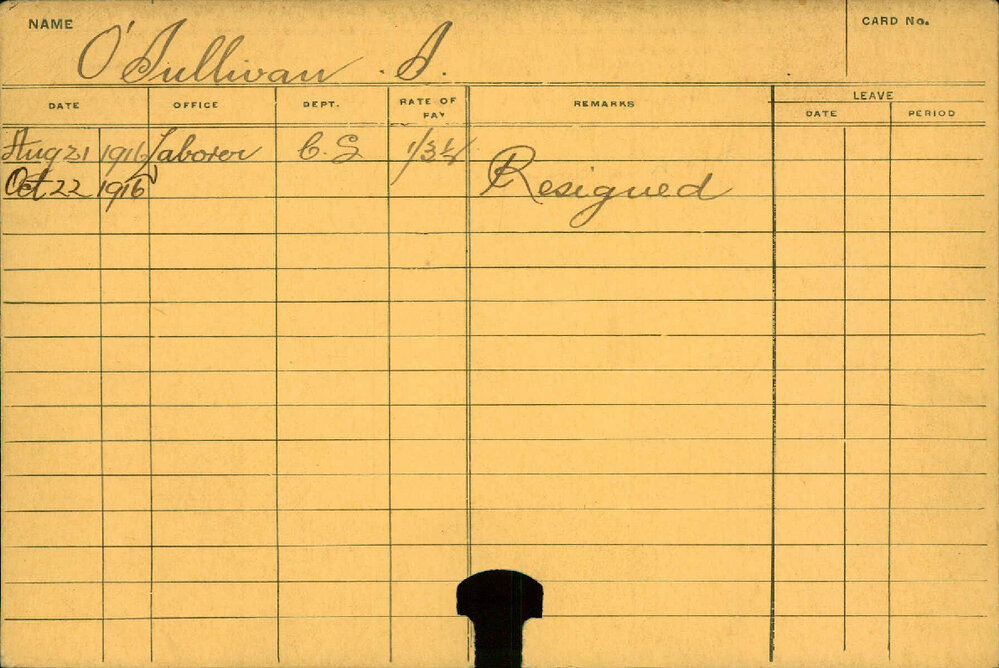 NAME O'Sullivan . S. CARD No.
DATE OFFICE DEPT. RATE OF PAY REMARKS LEAVE
DATE PERIOD
Aug 21 1916 Laborer C.S
Oct 22 1916 Resigned